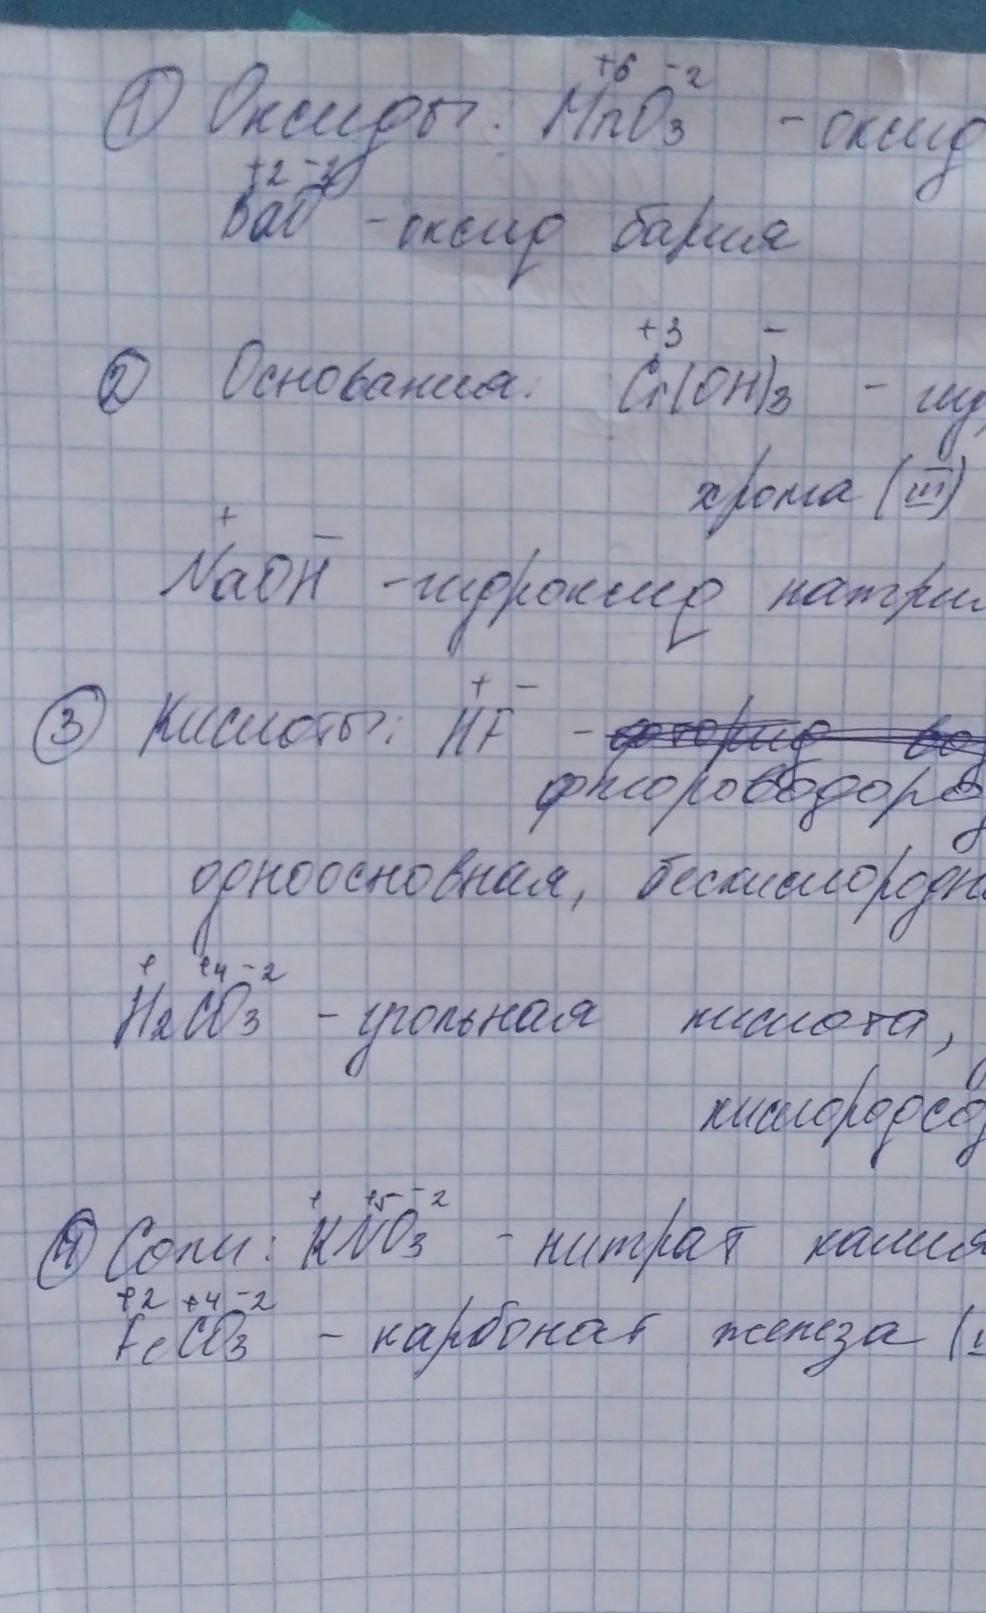 +6 -2
① Оксиды: MnO3 - оксид
+2 -2
BaO - оксид бария
+3 -
② Основания: Cr(OH)3 - гид
хрома (III)
+ -
NaOH - гидроксид натри
+ -
③ Кислоты: HF - фторид во
фтороводоро
одноосновная, бескислородн
+ +4 -2
H2CO3 - угольная кислота,
кислородсод
+ +5 -2
④ Соли: KNO3 - нитрат калия
+2 +4 -2
FeCO3 - карбонат железа (I